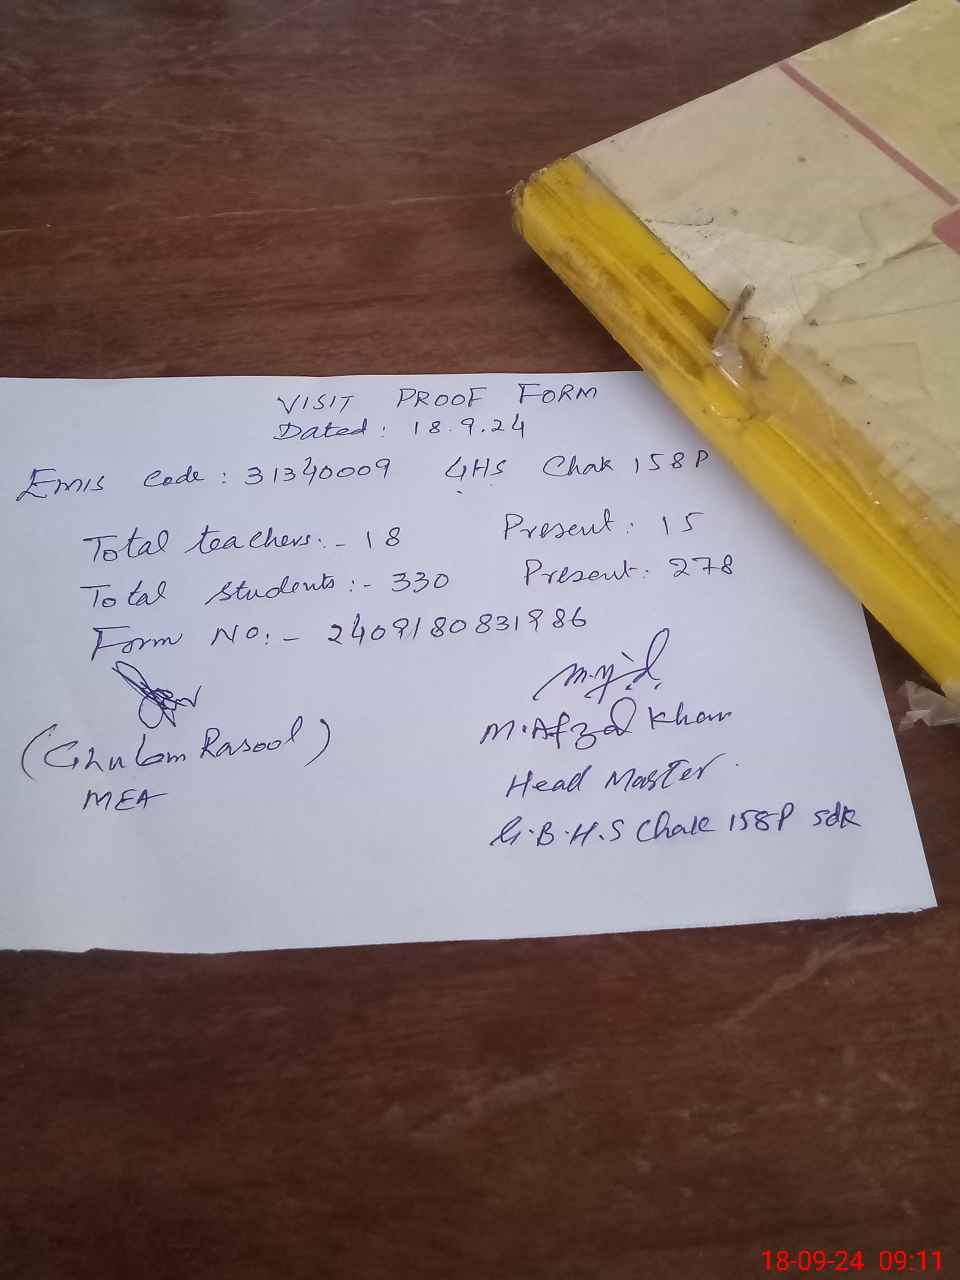 VISIT PROOF FORM
Dated: 18.9.24
EMIS Code: 31340009 GHS Chak 158P
Total teachers:- 18 Present: 15
Total students:- 330 Present: 278
Form No:- 2409180831986
(Ghulam Rasool)
MEA
M.Afzal Khan
Head Master.
G.B.H.S Chak 158P sdk
18-09-24 09:11